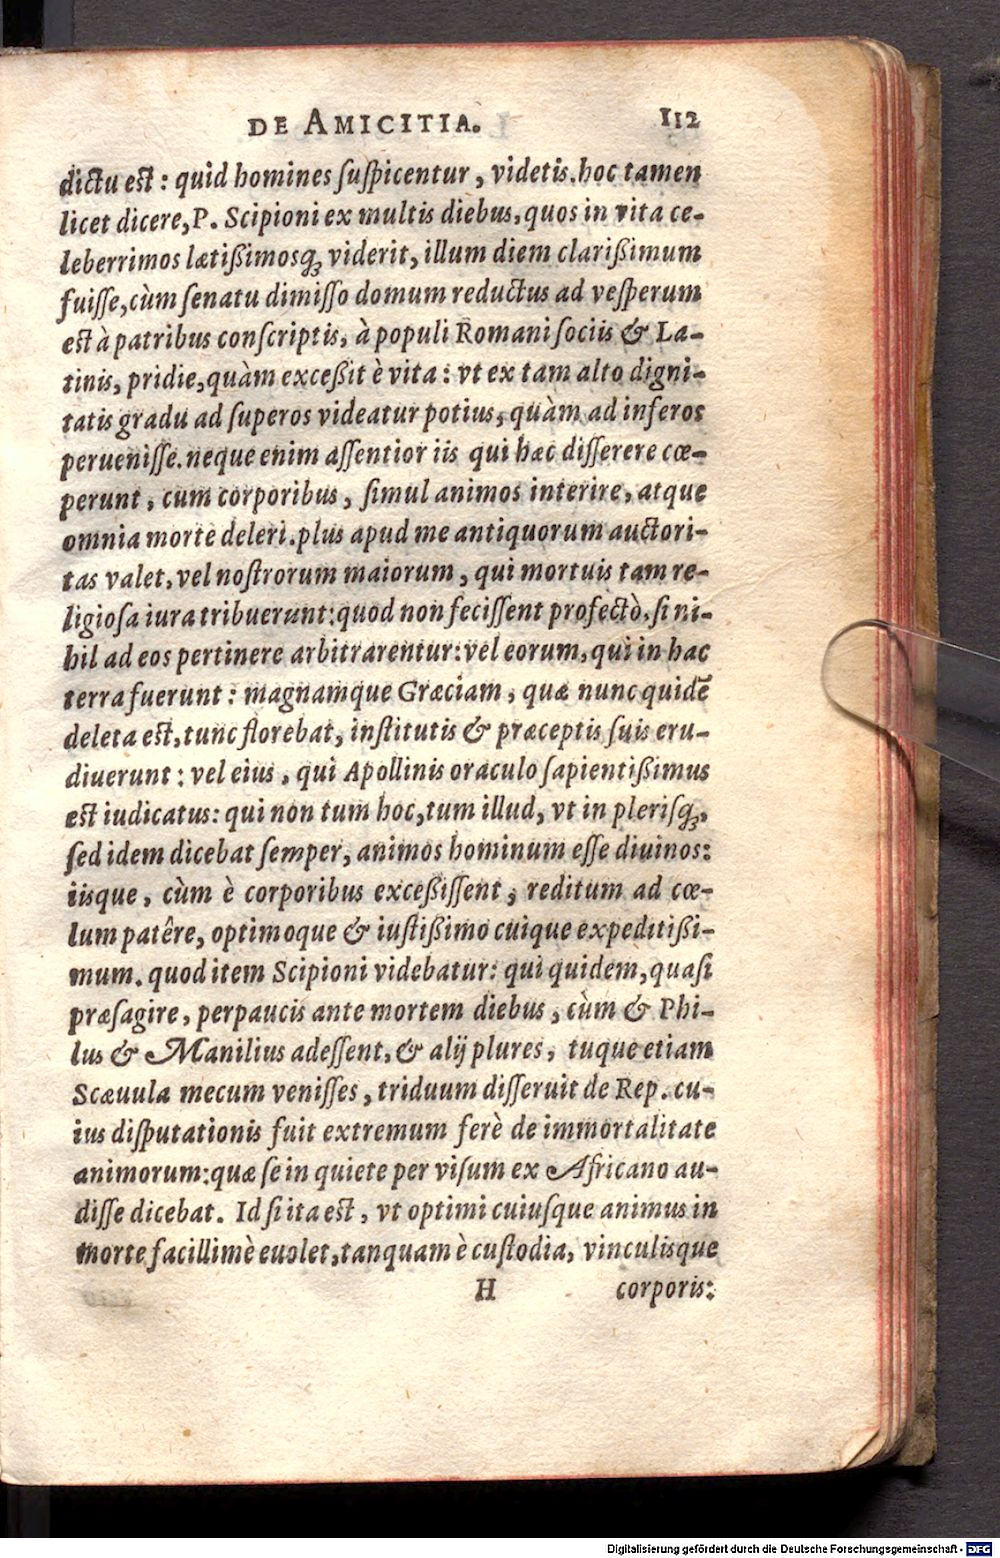 DE AMICITIA. 112
dictu est: quid homines ſuſpicentur, videtis. hoc tamen
licet dicere, P. Scipioni ex multis diebus, quos in vita ce-
leberrimos lætiſsimosq́; viderit, illum diem clariſsimum
fuiſſe, cùm ſenatu dimiſſo domum reductus ad veſperum
est à patribus conſcriptis, à populi Romani ſociis & La-
tinis, pridie, quàm exceſsit è vita: vt ex tam alto digni-
tatis gradu ad ſuperos videatur potius, quàm ad inferos
perueniſſe. neque enim aſſentior iis qui hæc diſſerere cœ-
perunt, cum corporibus, ſimul animos interire, atque
omnia morte deleri. plus apud me antiquorum auctori-
tas valet, vel noſtrorum maiorum, qui mortuis tam re-
ligioſa iura tribuerunt: quod non feciſſent profectò, ſi ni-
hil ad eos pertinere arbitrarentur: vel eorum, qui in hac
terra fuerunt: magnamque Græciam, quæ nunc quidē
deleta est, tunc florebat, inſtitutis & præceptis ſuis eru-
diuerunt: vel eius, qui Apollinis oraculo ſapientiſsimus
est iudicatus: qui non tum hoc, tum illud, vt in pleriſq́;,
ſed idem dicebat ſemper, animos hominum eſſe diuinos:
iisque, cùm è corporibus exceſsiſſent, reditum ad cœ-
lum patêre, optimoque & iuſtiſsimo cuique expeditiſsi-
mum. quod item Scipioni videbatur: qui quidem, quaſi
præſagire, perpaucis ante mortem diebus, cùm & Phi-
lus & Manilius adeſſent, & alij plures, tuque etiam
Scæuula mecum veniſſes, triduum diſſeruit de Rep. cu-
ius diſputationis fuit extremum ferè de immortalitate
animorum: quæ ſe in quiete per viſum ex Africano au-
diſſe dicebat. Id ſi ita est, vt optimi cuiuſque animus in
morte facillimè euolet, tanquam è cuſtodia, vinculisque
H corporis:
Digitalisierung gefördert durch die Deutsche Forschungsgemeinschaft - DFG